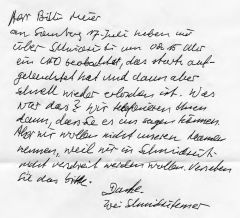 Herr Billy Meier
am Samstag 17. Juli haben wir
über Schmidrüti um 02.15 Uhr
ein UFO beobachtet, das stark auf-
geleuchtet hat und dann aber
schnell wieder erloschen ist. Was
war das? Wir Ihnen
dann, dass Sie es uns sagen können.
Aber wir wollen nicht unseren Namen
nennen, weil wir in Schmidrüti
nicht verschreit werden wollen. Verstehen
Sie das bitte.
Danke.
Zwei Schmidrütener